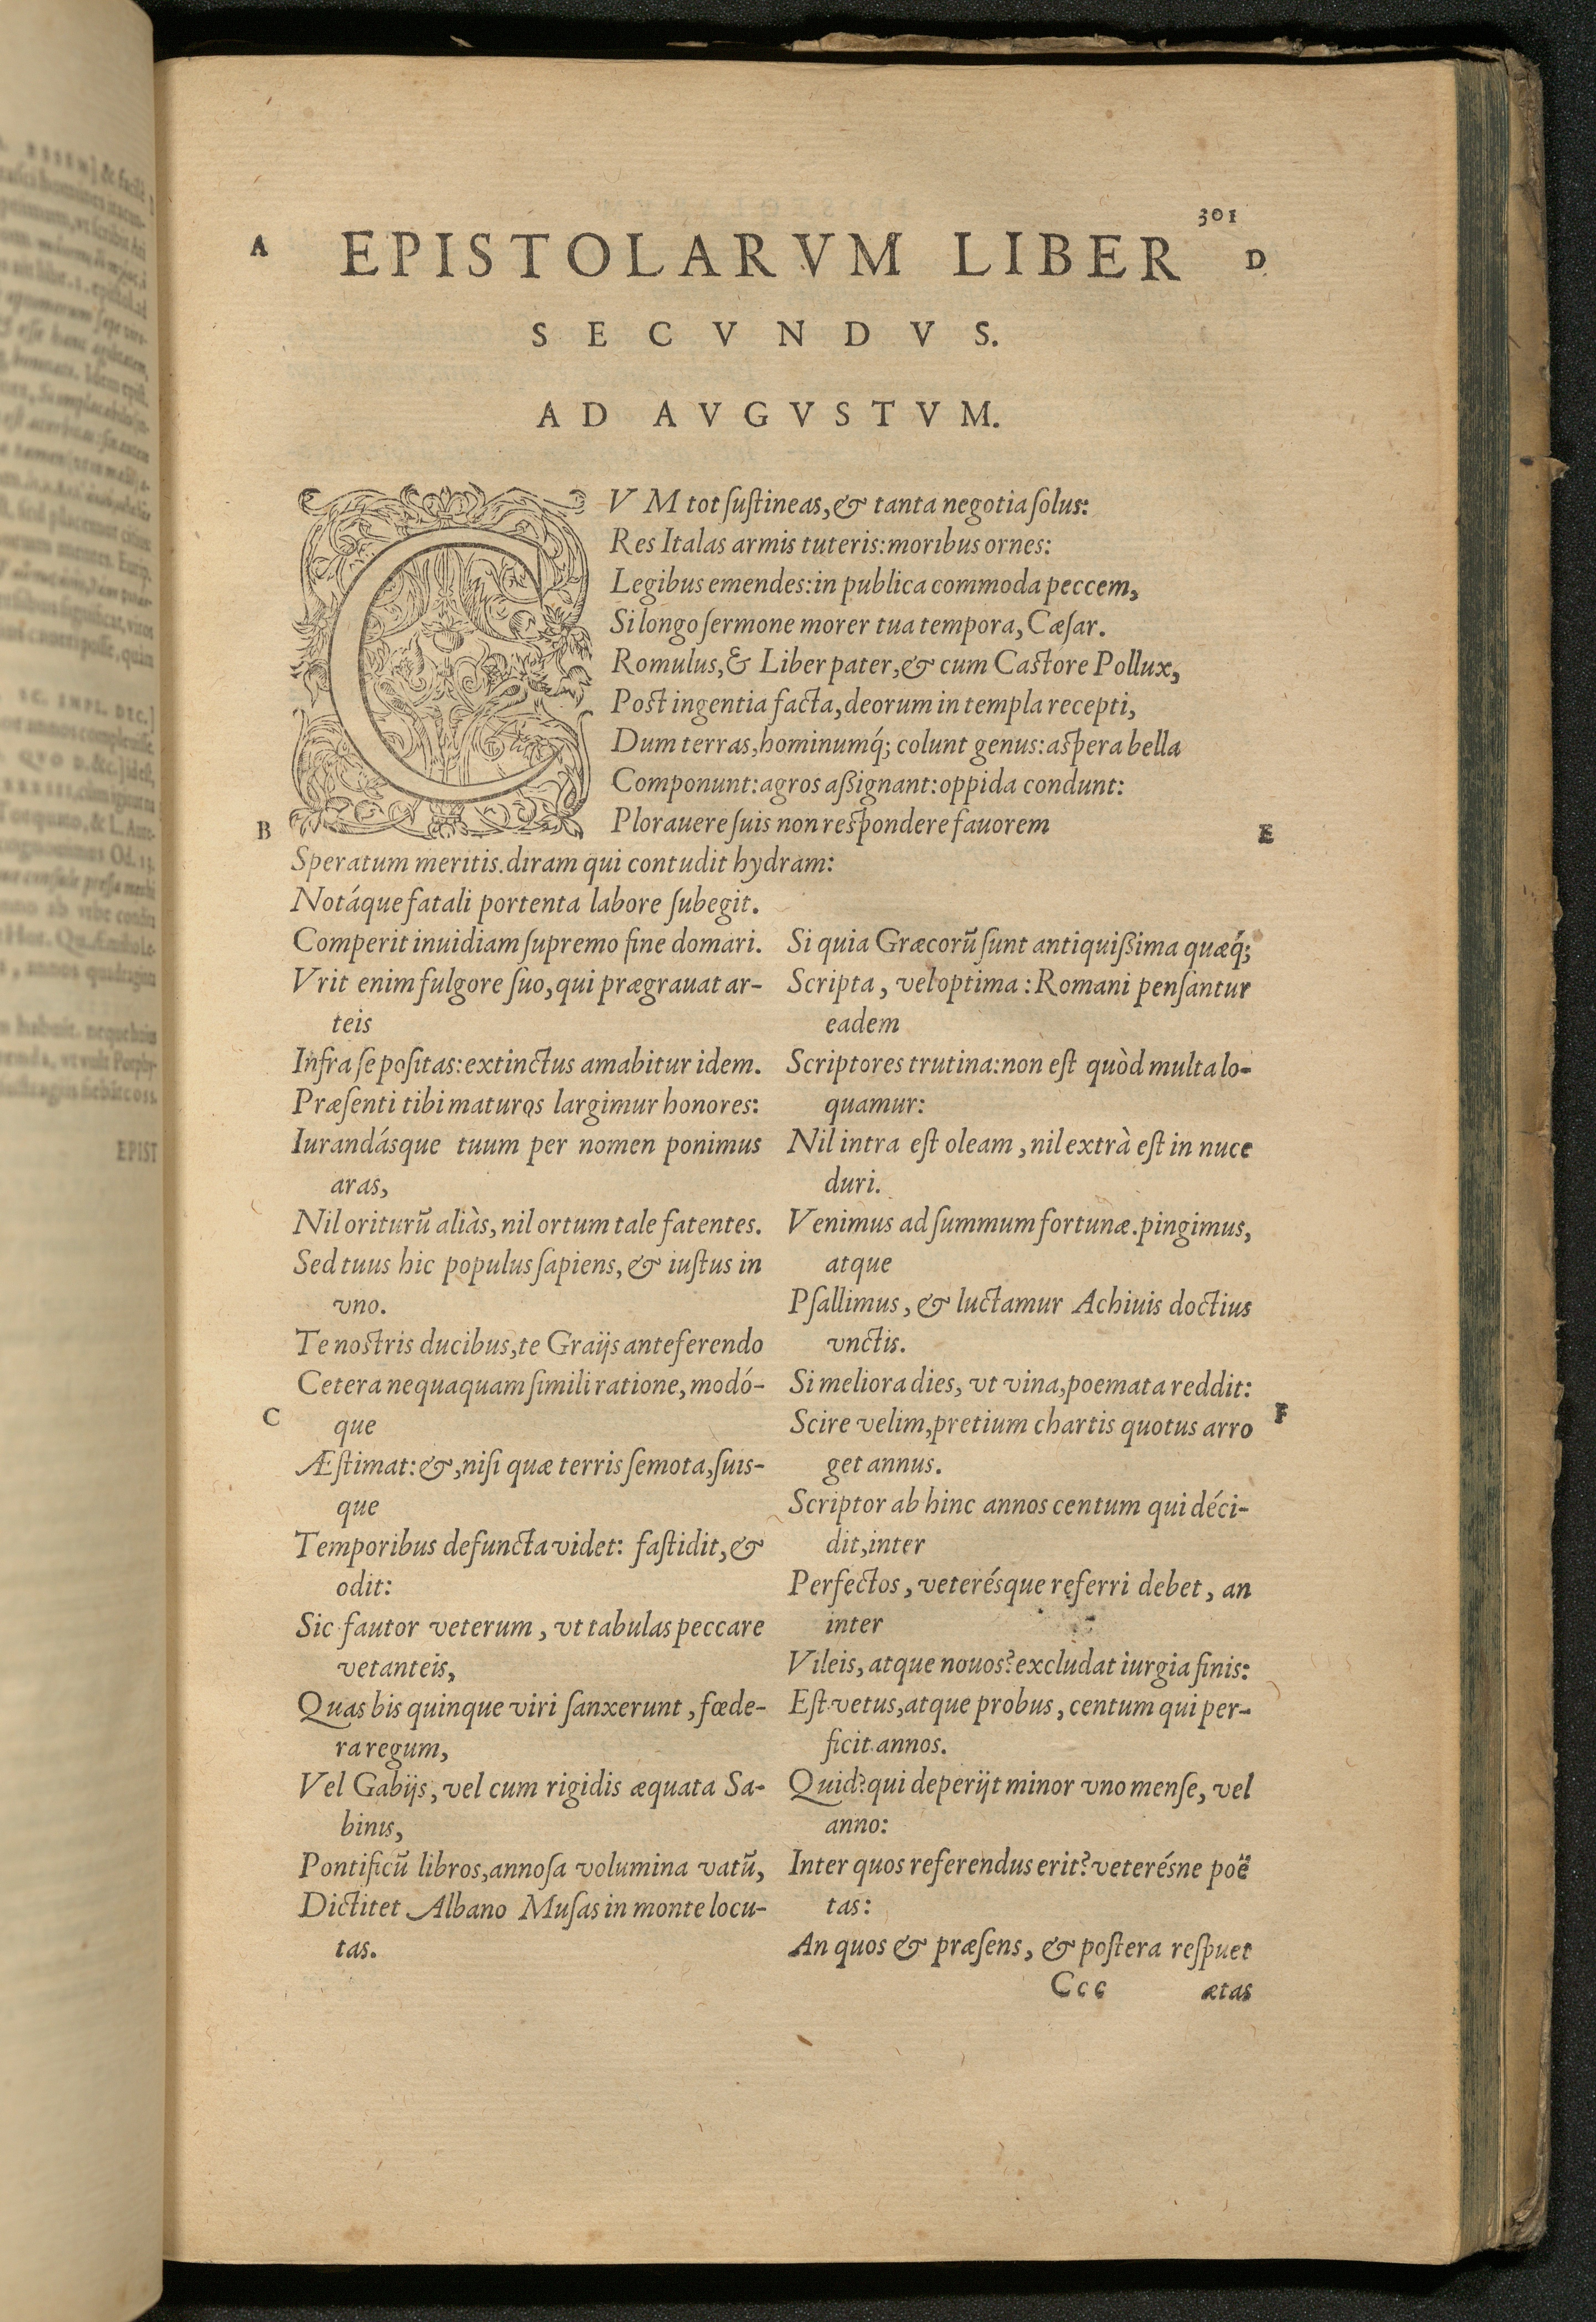 301
A EPISTOLARVM LIBER D
SECVNDVS.
AD AVGVSTVM.
CVM tot ſuſtineas, & tanta negotia ſolus:
Res Italas armis tuteris: moribus ornes:
Legibus emendes: in publica commoda peccem,
Si longo ſermone morer tua tempora, Cæſar.
Romulus, & Liber pater, & cum Caſtore Pollux,
Poſt ingentia facta, deorum in templa recepti,
Dum terras, hominumq́; colunt genus: aſpera bella
Componunt: agros aßignant: oppida condunt:
B Plorauere ſuis non reſpondere fauorem E
Speratum meritis. diram qui contudit hydram:
Notáque fatali portenta labore ſubegit.
Comperit inuidiam ſupremo fine domari.
Vrit enim fulgore ſuo, qui prægrauat ar-
teis
Infra ſe poſitas: extinctus amabitur idem.
Præſenti tibi maturos largimur honores:
Iurandásque tuum per nomen ponimus
aras,
Nil oriturū aliàs, nil ortum tale fatentes.
Sed tuus hic populus ſapiens, & iuſtus in
vno.
Te noſtris ducibus, te Graijs anteferendo
Cetera nequaquam ſimili ratione, modó-
C que
Æſtimat: &, niſi quæ terris ſemota, ſuis-
que
Temporibus defuncta videt: faſtidit, &
odit:
Sic fautor veterum, vt tabulas peccare
vetanteis,
Quas bis quinque viri ſanxerunt, fœde-
ra regum,
Vel Gabijs, vel cum rigidis æquata Sa-
binis,
Pontificū libros, annoſa volumina vatū,
Dictitet Albano Muſas in monte locu-
tas.
Si quia Græcorū ſunt antiquißima quæq́;
Scripta, vel optima: Romani penſantur
eadem
Scriptores trutina: non eſt quòd multa lo-
quamur:
Nil intra eſt oleam, nil extrà eſt in nuce
duri.
Venimus ad ſummum fortunæ. pingimus,
atque
Pſallimus, & luctamur Achiuis doctius
vnctis.
Si meliora dies, vt vina, poemata reddit:
Scire velim, pretium chartis quotus arro F
get annus.
Scriptor ab hinc annos centum qui déci-
dit, inter
Perfectos, veterésque referri debet, an
inter
Vileis, atque nouos? excludat iurgia finis:
Eſt vetus, atque probus, centum qui per-
ficit annos.
Quid? qui deperijt minor vno menſe, vel
anno:
Inter quos referendus erit? veterésne poë
tas:
An quos & præſens, & poſtera reſpuet
Ccc ætas